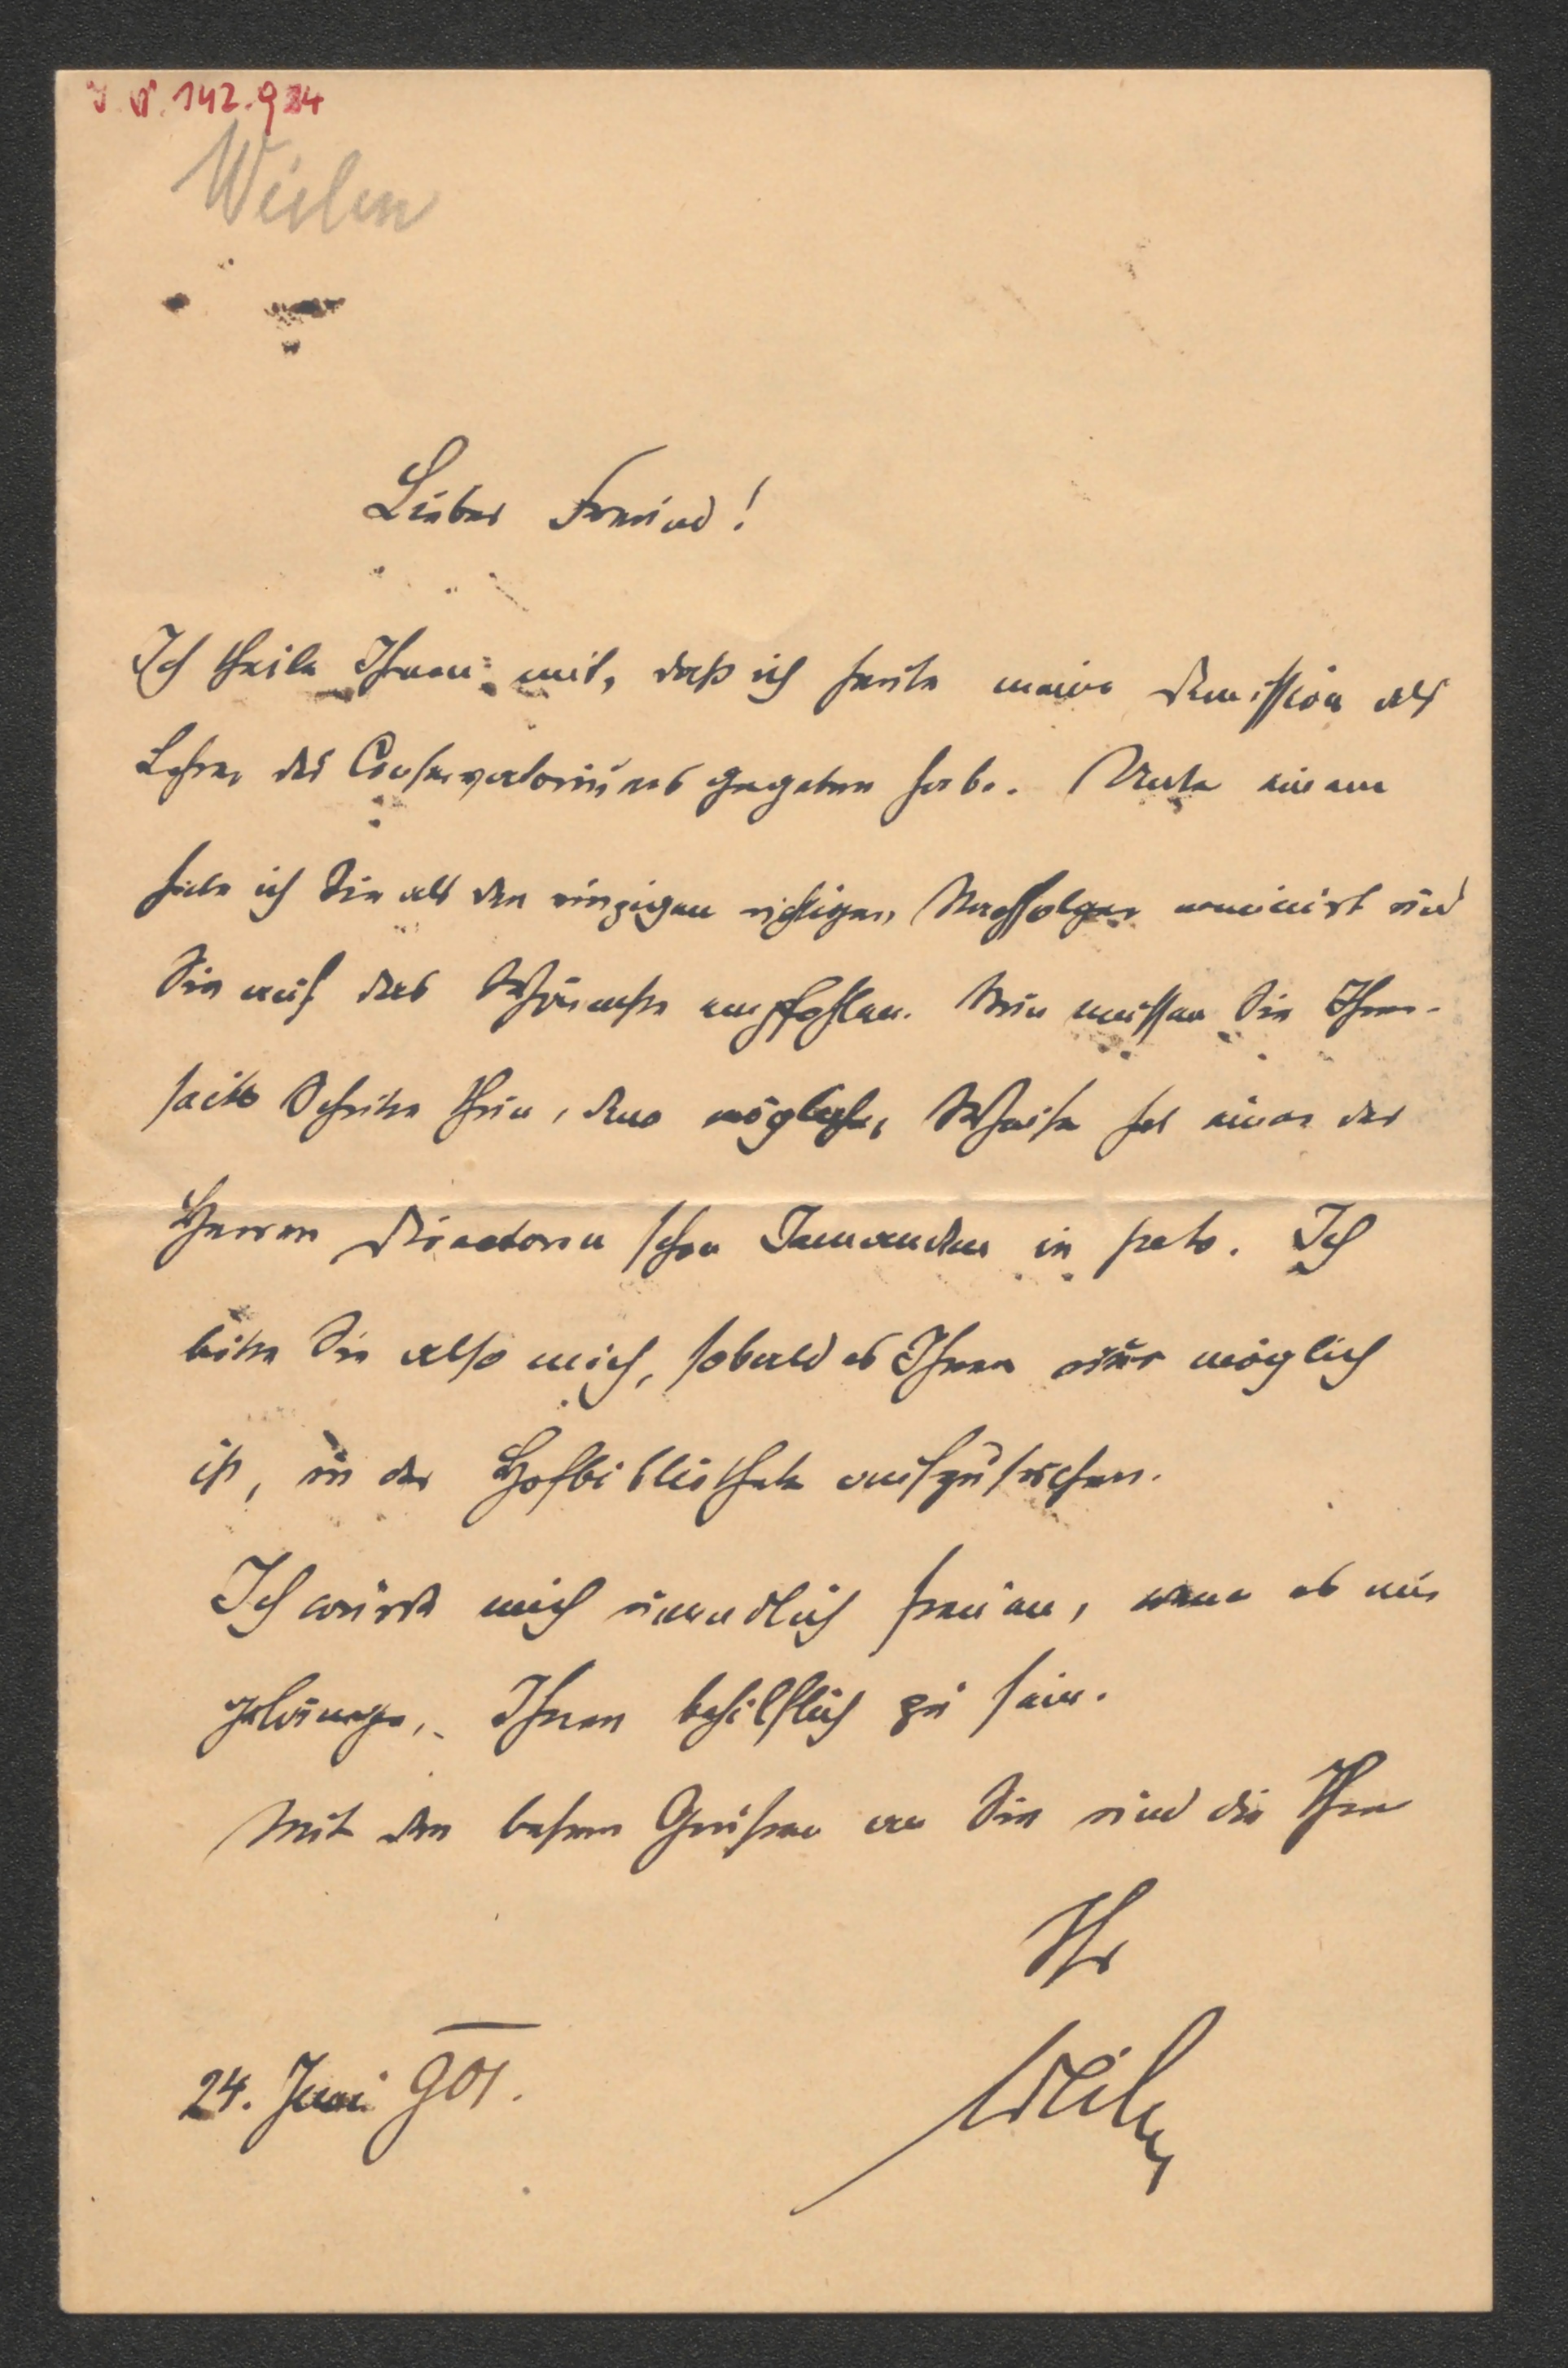 J. N. 142.924
Weilen
Lieber Freund!
Ich theile Ihnen mit, daß ich heute meine Demission als
Lehrer des Conservatoriums gegeben habe. Unter einem
habe ich Sie als den einzigen richtigen Nachfolger nominirt und
Sie auf das Wärmste empfohlen. Nun müssen Sie Ihrer-
seits Schritte thun, denn möglicher Weise hat einer der
Herren Directoren schon Jemanden in petto. Ich
bitte Sie also mich, sobald es Ihnen nur möglich
ist, in der Hofbibliothek aufzusuchen.
Ich würde mich unendlich freuen, wenn es mir
gelänge, Ihnen behilflich zu sein.
Mit den besten Grüßen an Sie und die Ihren
Ihr
Weilen
24. Juni 901.